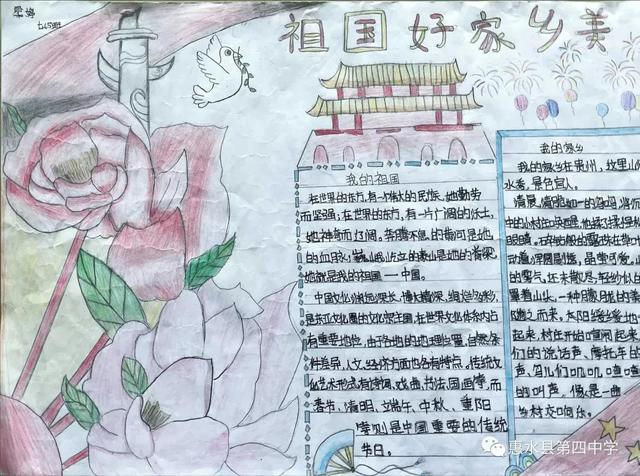 祖国好家乡美
我的祖国
在世界的东方,有一个伟大的民族,她勤劳
而坚强;在世界的东方,有一片广阔的沃土,
她神奇而辽阔。奔腾不息的黄河是她
的血液;巍山屹立的泰山是她的脊梁
她就是我的祖国——中国。
中国文化渊远深长、博大精深、绚烂多彩,
是东亚文化圈的文化宗主国,在世界文化体系内占
有重要地位,由于各地的地理位置、自然条
件差异,人文、经济方面也各有特点。传统文
化艺术形式有诗词、戏曲、书法、国画等,而
春节、清明、端午、中秋、重阳
等则是中国重要的传统
节日。
我的家乡
我的家乡在贵州,这里山
水秀,景色宜人。
清晨,
中的小村庄
眼睛。
动着浑圆剔透,晶莹可爱。山
的雾气,还未散尽,轻纱似的
罩着山头,一种朦胧的美
随之而来,太阳缓缓地
起来,村庄开始喧闹起来,
们的说话声、摩托车
声、鸟儿们叽叽喳喳
的叫声,像是一曲
乡村交响乐。
惠水县第四中学